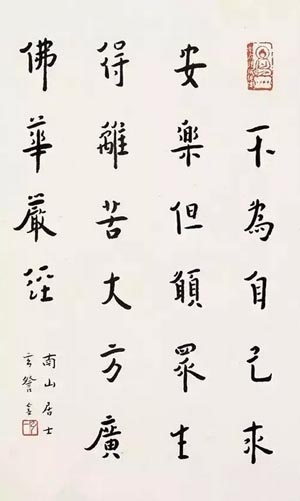 不為自己求
安樂但願眾生
得離苦大方廣
佛華嚴經
南山居士
玄詧